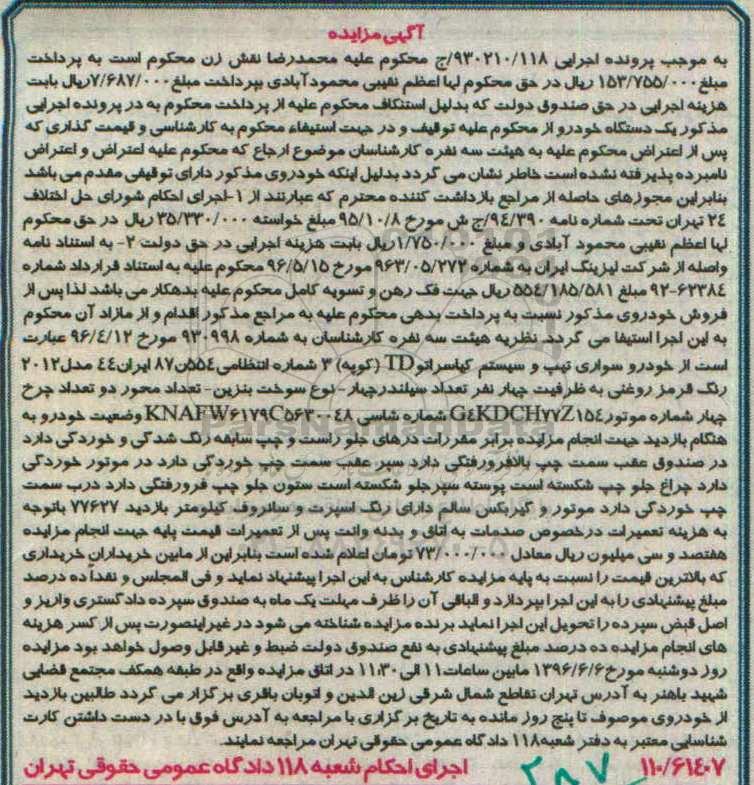 آگهی مزایده
به موجب پرونده اجرایی ۹۳۰۲۱۰/۱۱۸/ج محکوم علیه محمدرضا نقش زن محکوم است به پرداخت
مبلغ ۱۵۳/۷۵۵/۰۰۰ ریال در حق محکوم لها اعظم نقیبی محمودآبادی بپرداخت مبلغ ۷/۶۸۷/۰۰۰ریال بابت
هزینه اجرایی در حق صندوق دولت که بدلیل استنکاف محکوم علیه از پرداخت محکوم به در پرونده اجرایی
مذکور یک دستگاه خودرو از محکوم علیه توقیف و در جهت استیفاء محکوم به کارشناسی و قیمت گذاری که
پس از اعتراض محکوم علیه به هیئت سه نفره کارشناسان موضوع ارجاع که محکوم علیه اعتراض و اعتراض
نامبرده پذیرفته نشده است خاطر نشان می گردد بدلیل اینکه خودروی مذکور دارای توقیفی مقدم می باشد
بنابراین مجوزهای حاصله از مراجع بازداشت کننده محترم که عبارتند از ۱-اجرای احکام شورای حل اختلاف
۲۴ تهران تحت شماره نامه ۹۴/۳۹۰/ج ش مورخ ۹۵/۱۰/۸ مبلغ خواسته ۳۵/۳۳۰/۰۰۰ ریال در حق محکوم
لها اعظم نقیبی محمود آبادی و مبلغ ۱/۷۵۰/۰۰۰ریال بابت هزینه اجرایی در حق دولت ۲- به استناد نامه
واصله از شرکت لیزینگ ایران به شماره ۹۶۳/۰۵/۲۷۲ مورخ ۹۶/۵/۱۵ محکوم علیه به استناد قرارداد شماره
۹۲-۶۲۳۸۴ مبلغ ۵۵۴/۱۸۵/۵۸۱ ریال جهت فک رهن و تسویه کامل محکوم علیه بدهکار می باشد لذا پس از
فروش خودروی مذکور نسبت به پرداخت بدهی محکوم علیه به مراجع مذکور اقدام و از مازاد آن محکوم
به این اجرا استیفا می گردد. نظریه هیئت سه نفره کارشناسان به شماره ۹۳۰۹۹۸ مورخ ۹۶/۴/۱۲ عبارت
است از خودرو سواری تیپ و سیستم کیاسراتوTD (کوپه) ۳ شماره انتظامی۵۵۴ن۸۷ ایران۴۴ مدل۲۰۱۲
رنگ قرمز روغنی به ظرفیت چهار نفر تعداد سیلندرچهار- نوع سوخت بنزین- تعداد محور دو تعداد چرخ
چهار شماره موتورG4KDCH۷۷Z۱۵۴ شماره شاسی KNAFW۶۱۷۹C۵۶۳۰۰۴۸ وضعیت خودرو به
هنگام بازدید جهت انجام مزایده برابر مقررات درهای جلو راست و چپ سابقه رنگ شدگی و خوردگی دارد
در صندوق عقب سمت چپ بالافرورفتگی دارد سپر عقب سمت چپ خوردگی دارد در موتور خوردگی
دارد چراغ جلو چپ شکسته است پوسته سپرجلو شکسته است ستون جلو چپ فرورفتگی دارد درب سمت
چپ خوردگی دارد موتور و گیربکس سالم دارای رنگ اسپرت و سانروف کیلومتر بازدید ۷۷۶۲۷ باتوجه
به هزینه تعمیرات درخصوص صدمات به اتاق و بدنه وانت پس از تعمیرات قیمت پایه جهت انجام مزایده
هفتصد و سی میلیون ریال معادل ۷۳/۰۰۰/۰۰۰ تومان اعلام شده است بنابراین از مابین خریداران خریداری
که بالاترین قیمت را نسبت به پایه مزایده کارشناس به این اجرا پیشنهاد نماید و فی المجلس و نقداً ده درصد
مبلغ پیشنهادی را به این اجرا بپردازد و الباقی آن را ظرف مهلت یک ماه به صندوق سپرده دادگستری واریز و
اصل قبض سپرده را تحویل این اجرا نماید برنده مزایده شناخته می شود در غیراینصورت پس از کسر هزینه
های انجام مزایده ده درصد مبلغ پیشنهادی به نفع صندوق دولت ضبط و غیرقابل وصول خواهد بود مزایده
روز دوشنبه مورخ۱۳۹۶/۶/۶ مابین ساعات۱۱ الی ۱۱:۳۰ در اتاق مزایده واقع در طبقه همکف مجتمع قضایی
شهید باهنر به آدرس تهران تقاطع شمال شرقی زین الدین و اتوبان باقری برگزار می گردد طالبین بازدید
از خودروی موصوف تا پنج روز مانده به تاریخ برگزاری با مراجعه به آدرس فوق با در دست داشتن کارت
شناسایی معتبر به دفتر شعبه۱۱۸ دادگاه عمومی حقوقی تهران مراجعه نمایند.
۱۱۰/۶۱۴۰۷ اجرای احکام شعبه ۱۱۸ دادگاه عمومی حقوقی تهران
۲۸۷
ParsNamadData